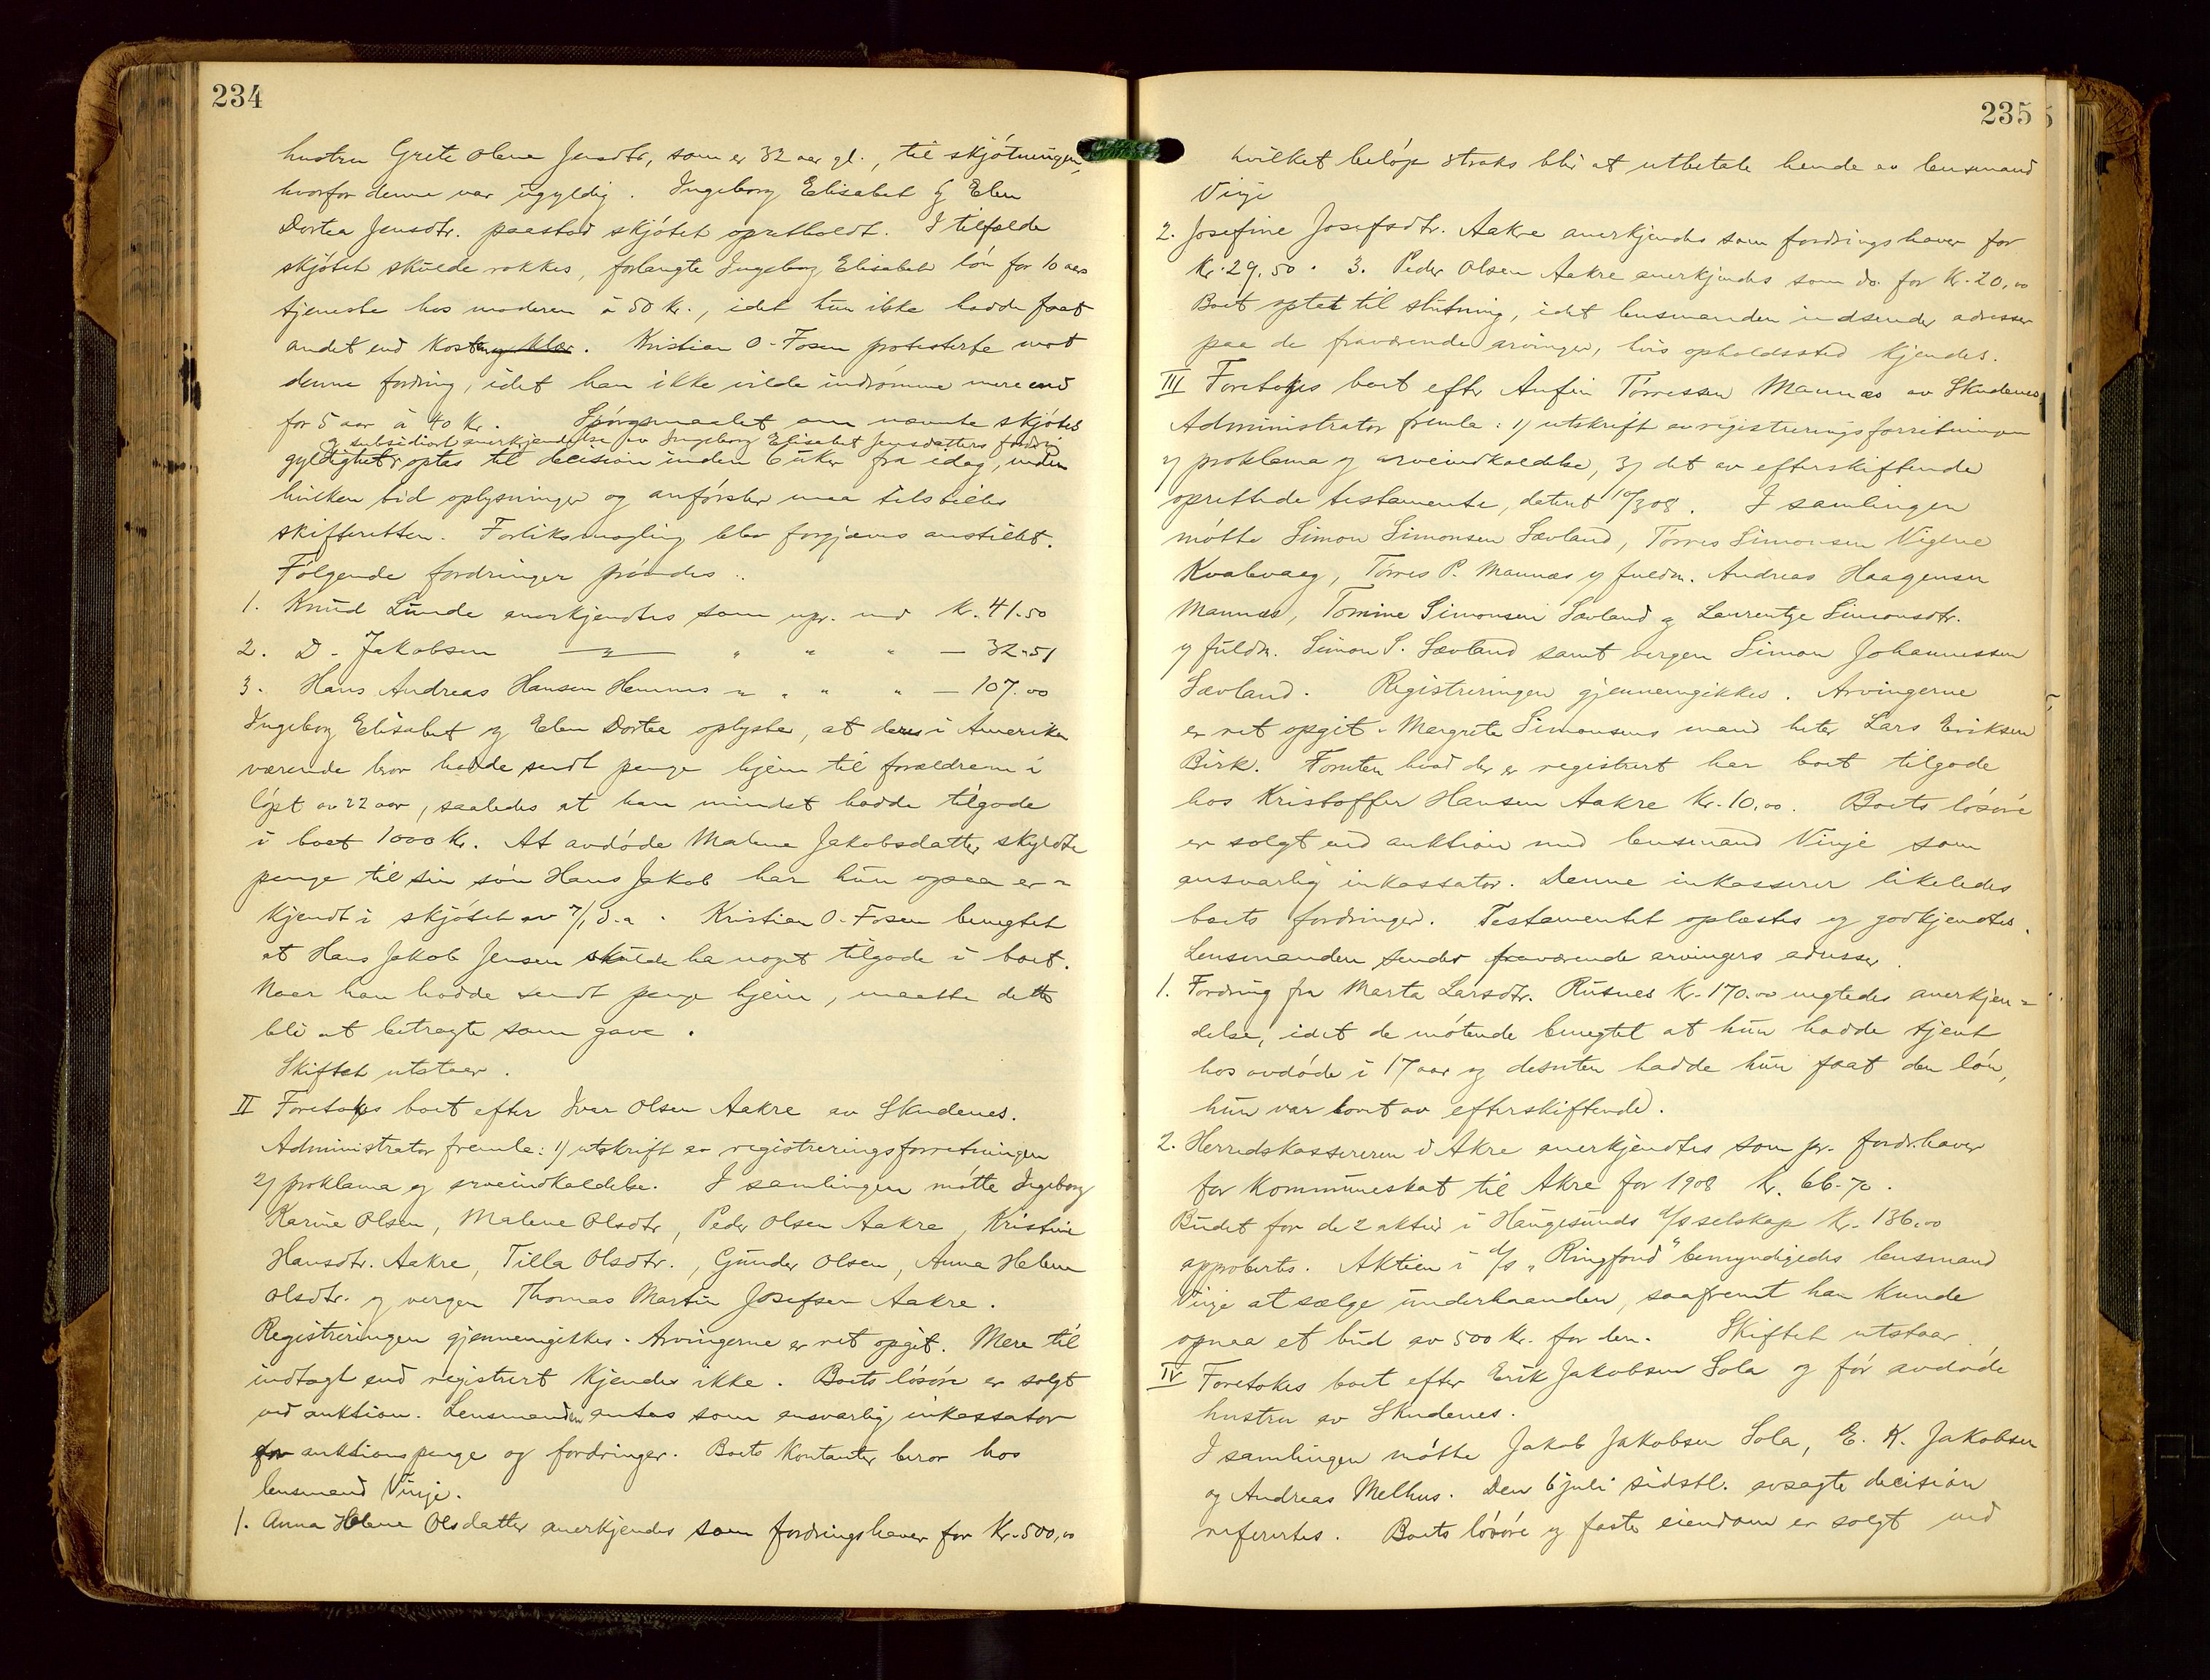 234
hustru Grete Olene Jensdtr, som er 32 aar gl., til skjøtningen,
hvorfor denne var ugyldig. Ingeborg Elisabet og Elen
Dortea Jensdtr. paastod skjøtet opretholdt. I tilfælde
skjøtet skulde rokkes, forlangte Ingeborg Elisabet løn for 10 aars
tjeneste hos moderen á 50 kr., idet hun ikke hadde faat
andet end kost og klær. Kristian O. Fosen protesterte mot
denne fordring, idet han ikke vilde indrømme mere end
for 5 aar á 40 kr. Spørgsmaalet om nævnte skjøtes
og subsidiært anerkjendelse av Ingeborg Elisabet Jensdatters fordring
gyldighet optas til decision inden 6 uker fra idag, inden
hvilken tid oplysninger og anførsler maa tilstilles
skifteretten. Forliksmægling blev forgjæves anstillet.
Følgende fordringer prøvdes:
1. Knud Lunde anerkjendtes som upr. med kr. 41.50
2. D. Jakobsen —"— " " " — 32.51
3. Hans Andreas Hansen Hemnes " " " " — 107.00
Ingeborg Elisabet og Elen Dortea oplyste, at deres i Amerika
værende bror hadde sendt penge hjem til forældrene i
løpet av 22 aar, saaledes at han mindst hadde tilgode
i boet 1000 kr. At avdøde Malene Jakobsdatter skyldte
penge til sin søn Hans Jakob har hun ogsaa er-
kjendt i skjøtet av 7/1 d.a. Kristian O. Fosen benegtet
at Hans Jakob Jensen skulde ha noget tilgode i boet.
Naar han hadde sendt penge hjem, maatte dette
bli at betragte som gave.
Skiftet utstaar.
II Foretokes boet efter Iver Olsen Aakre av Skudenes.
Administrator fremla: 1) utskrift av registreringsforretningen
2) proklama og arveindkaldelse. I samlingen møtte Ingeborg
Karine Olsen, Malene Olsdtr, Peder Olsen Aakre, Kristine
Hansdtr. Aakre, Tilla Olsdtr., Gunder Olsen, Anna Helene
Olsdtr. og vergen Thomas Martin Josefsen Aakre.
Registreringen gjennemgikkes. Arvingerne er ret opgit. Mere til
indtægt end registrert kjendes ikke. Boets løsøre er solgt
ved auktion. Lensmanden antas som ansvarlig inkassator
for auktionspenge og fordringer. Boets kontanter beror hos
lensmand Vinje.
1. Anna Helene Olsdatter anerkjendes som fordringshaver for kr. 500,00
235
hvilket beløp straks blir at utbetale hende av lensmand
Vinje
2. Josefine Josefsdtr. Aakre anerkjendes som fordringshaver for
kr. 29,50. 3. Peder Olsen Aakre anerkjendes som do. for kr. 20,00
Boet optat til slutning, idet lensmanden indsender adresser
paa de fraværende arvinger, hvis opholdssted kjendes.
III Foretokes boet efter Anfin Tørressen Mannæs av Skudenes
Administrator fremla: 1) utskrift av registreringsforretningen
2) proklama og arveindkaldelse, 3) det av efterskiftende
oprettede testamente, datert 10/3 08. I samlingen
møtte Simon Simonsen Sævland, Tørres Simonsen Vigene
Kvalevaag, Tørres P. Mannæs og fuldm. Andreas Haagensen
Mannæs, Tomine Simonsen Sævland og Laurentze Simonsdtr.
og fuldm. Simon S. Sævland samt vergen Simon Johannessen
Sævland. Registreringen gjennemgikkes. Arvingerne
er ret opgit. Margrete Simonsens mand heter Lars Eriksen
Birk. Foruten hvad der er registrert har boet tilgode
hos Kristoffer Hansen Aakre kr. 10,00. Boets løsøre
er solgt ved auktion med lensmand Vinje som
ansvarlig inkassator. Denne inkasserer likeledes
boets fordringer. Testamentet oplæstes og godkjendtes.
Lensmanden sender fraværende arvingers adresser.
1. Fordring fra Marta Larsdtr. Rusnes kr. 170.00 negtedes anerkjen-
delse, idet de møtende benegtet at hun hadde tjent
hos avdøde i 17 aar og desuten hadde hun faat den løn,
hun var lovet av efterskiftende.
2. Herredskassereren i Akre anerkjendtes som pr. fordr.haver
for kommuneskat til Akre for 1908 kr. 66.70.
Budet for de 2 aktier i Haugesunds d/s selskap kr. 136.00
approbertes. Aktien i d/s "Ringfond" bemyndigedes lensmand
Vinje at sælge underhaanden, saafremt han kunde
opnaa et bud av 500 kr. for den. Skiftet utstaar.
IV Foretokes boet efter Erik Jakobsen Sola og før avdøde
hustru av Skudenes.
I samlingen møtte Jakob Jakobsen Sola, E. K. Jakobsen
og Andreas Melhus. Den 6 juli sidstl. avsagte decision
refertes. Boets løsøre og faste eiendom er solgt ved